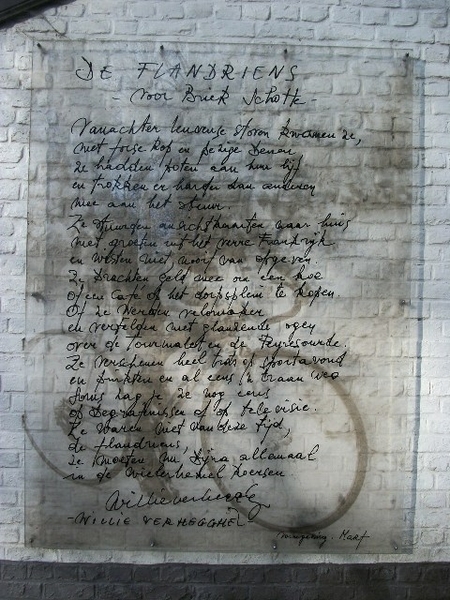 DE FLANDRIENS
- Voor Briek Schotte -
Vanachter Leuvense stoven kwamen ze,
met forse kop en pezige benen
ze hadden poten aan hun lijf
en trokken er harder dan anderen
mee aan het stuur.
Ze stuurden ansichtkaarten naar huis
met groeten uit het verre Frankrijk
en wisten niet van opgeven.
Ze brachten geld mee om een koe
of een café op het dorpsplein te kopen.
Of ze werden velomaker
en vertelden met glanzende ogen
over de Tourmalet en de Peyresourde.
Ze verschenen heel trots op sportavond
en pinkten er al eens 'n traan weg
soms zag je ze nog eens
op begrafenissen of op televisie.
Ze waren niet van deze tijd,
de flandriens,
ze moeten nu bijna allemaal
in de wielerhemel koersen.
Willie Verhegghe
- WILLIE VERHEGGHE